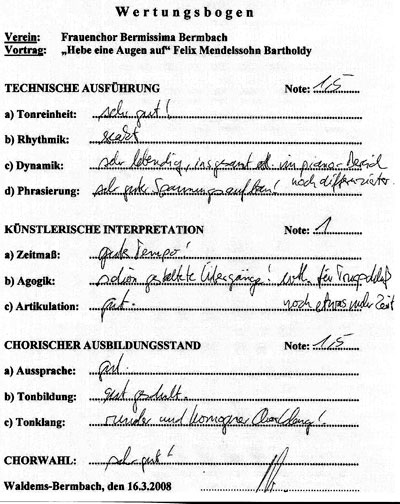 Wertungsbogen
Verein: Frauenchor Bermissima Bermbach
Vortrag: „Hebe eine Augen auf“ Felix Mendelssohn Bartholdy
TECHNISCHE AUSFÜHRUNG Note: 1,5
a) Tonreinheit: sehr gut!
b) Rhythmik: exakt
c) Dynamik: sehr lebendig, insgesamt evtl. im piano-Bereich
noch differenzierter.
d) Phrasierung: sehr guter Spannungsaufbau!
KÜNSTLERISCHE INTERPRETATION Note: 1
a) Zeitmaß: gutes Tempo!
b) Agogik: schön gestaltete Übergänge! für Trugschluß
noch etwas mehr Zeit
c) Artikulation: gut.
CHORISCHER AUSBILDUNGSSTAND Note: 1,5
a) Aussprache: gut.
b) Tonbildung: gut geschult.
c) Tonklang: runder und homogener Chorklang!
CHORWAHL: sehr gut!
Waldems-Bermbach, den 16.3.2008